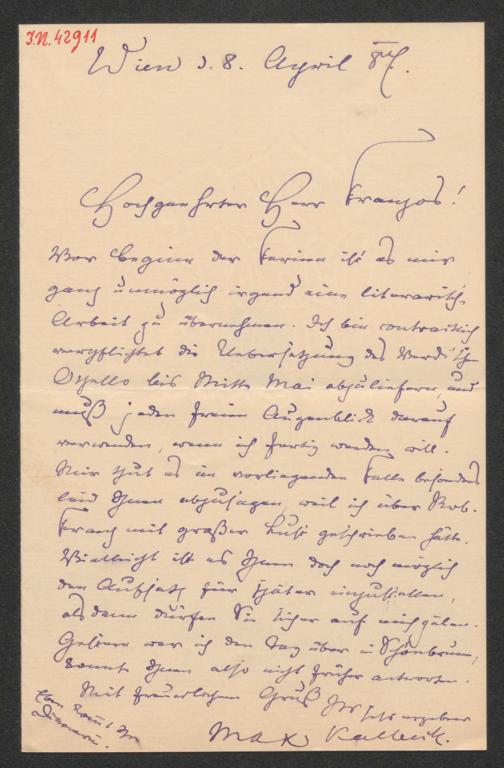 J.N. 42911
Wien d. 8. April 87.
Hochgeehrter Herr Franzos!
Vor Beginn der Ferien ist es mir
ganz unmöglich irgend eine literarische
Arbeit zu übernehmen. Ich bin contractlich
verpflichtet die Uebersetzung des Verdi'schen
Othello bis Mitte Mai abzuliefern, und
muß jeden freien Augenblick darauf
verwenden, wenn ich fertig werden will.
Mir thut es im vorliegenden Falle besonders
leid Ihnen abzusagen, weil ich über Rob.
Franz mit großer Lust geschrieben hätte.
Vielleicht ist es Ihnen doch noch möglich
den Aufsatz für später
als dann dürfen Sie sicher auf mich zälen.
Gestern war ich den Tag über in Schönbrunn,
konnte Ihnen also nicht früher antworten.
Mit freundlichem Gruß
Ihr sehr ergebener
Max Kalbeck.